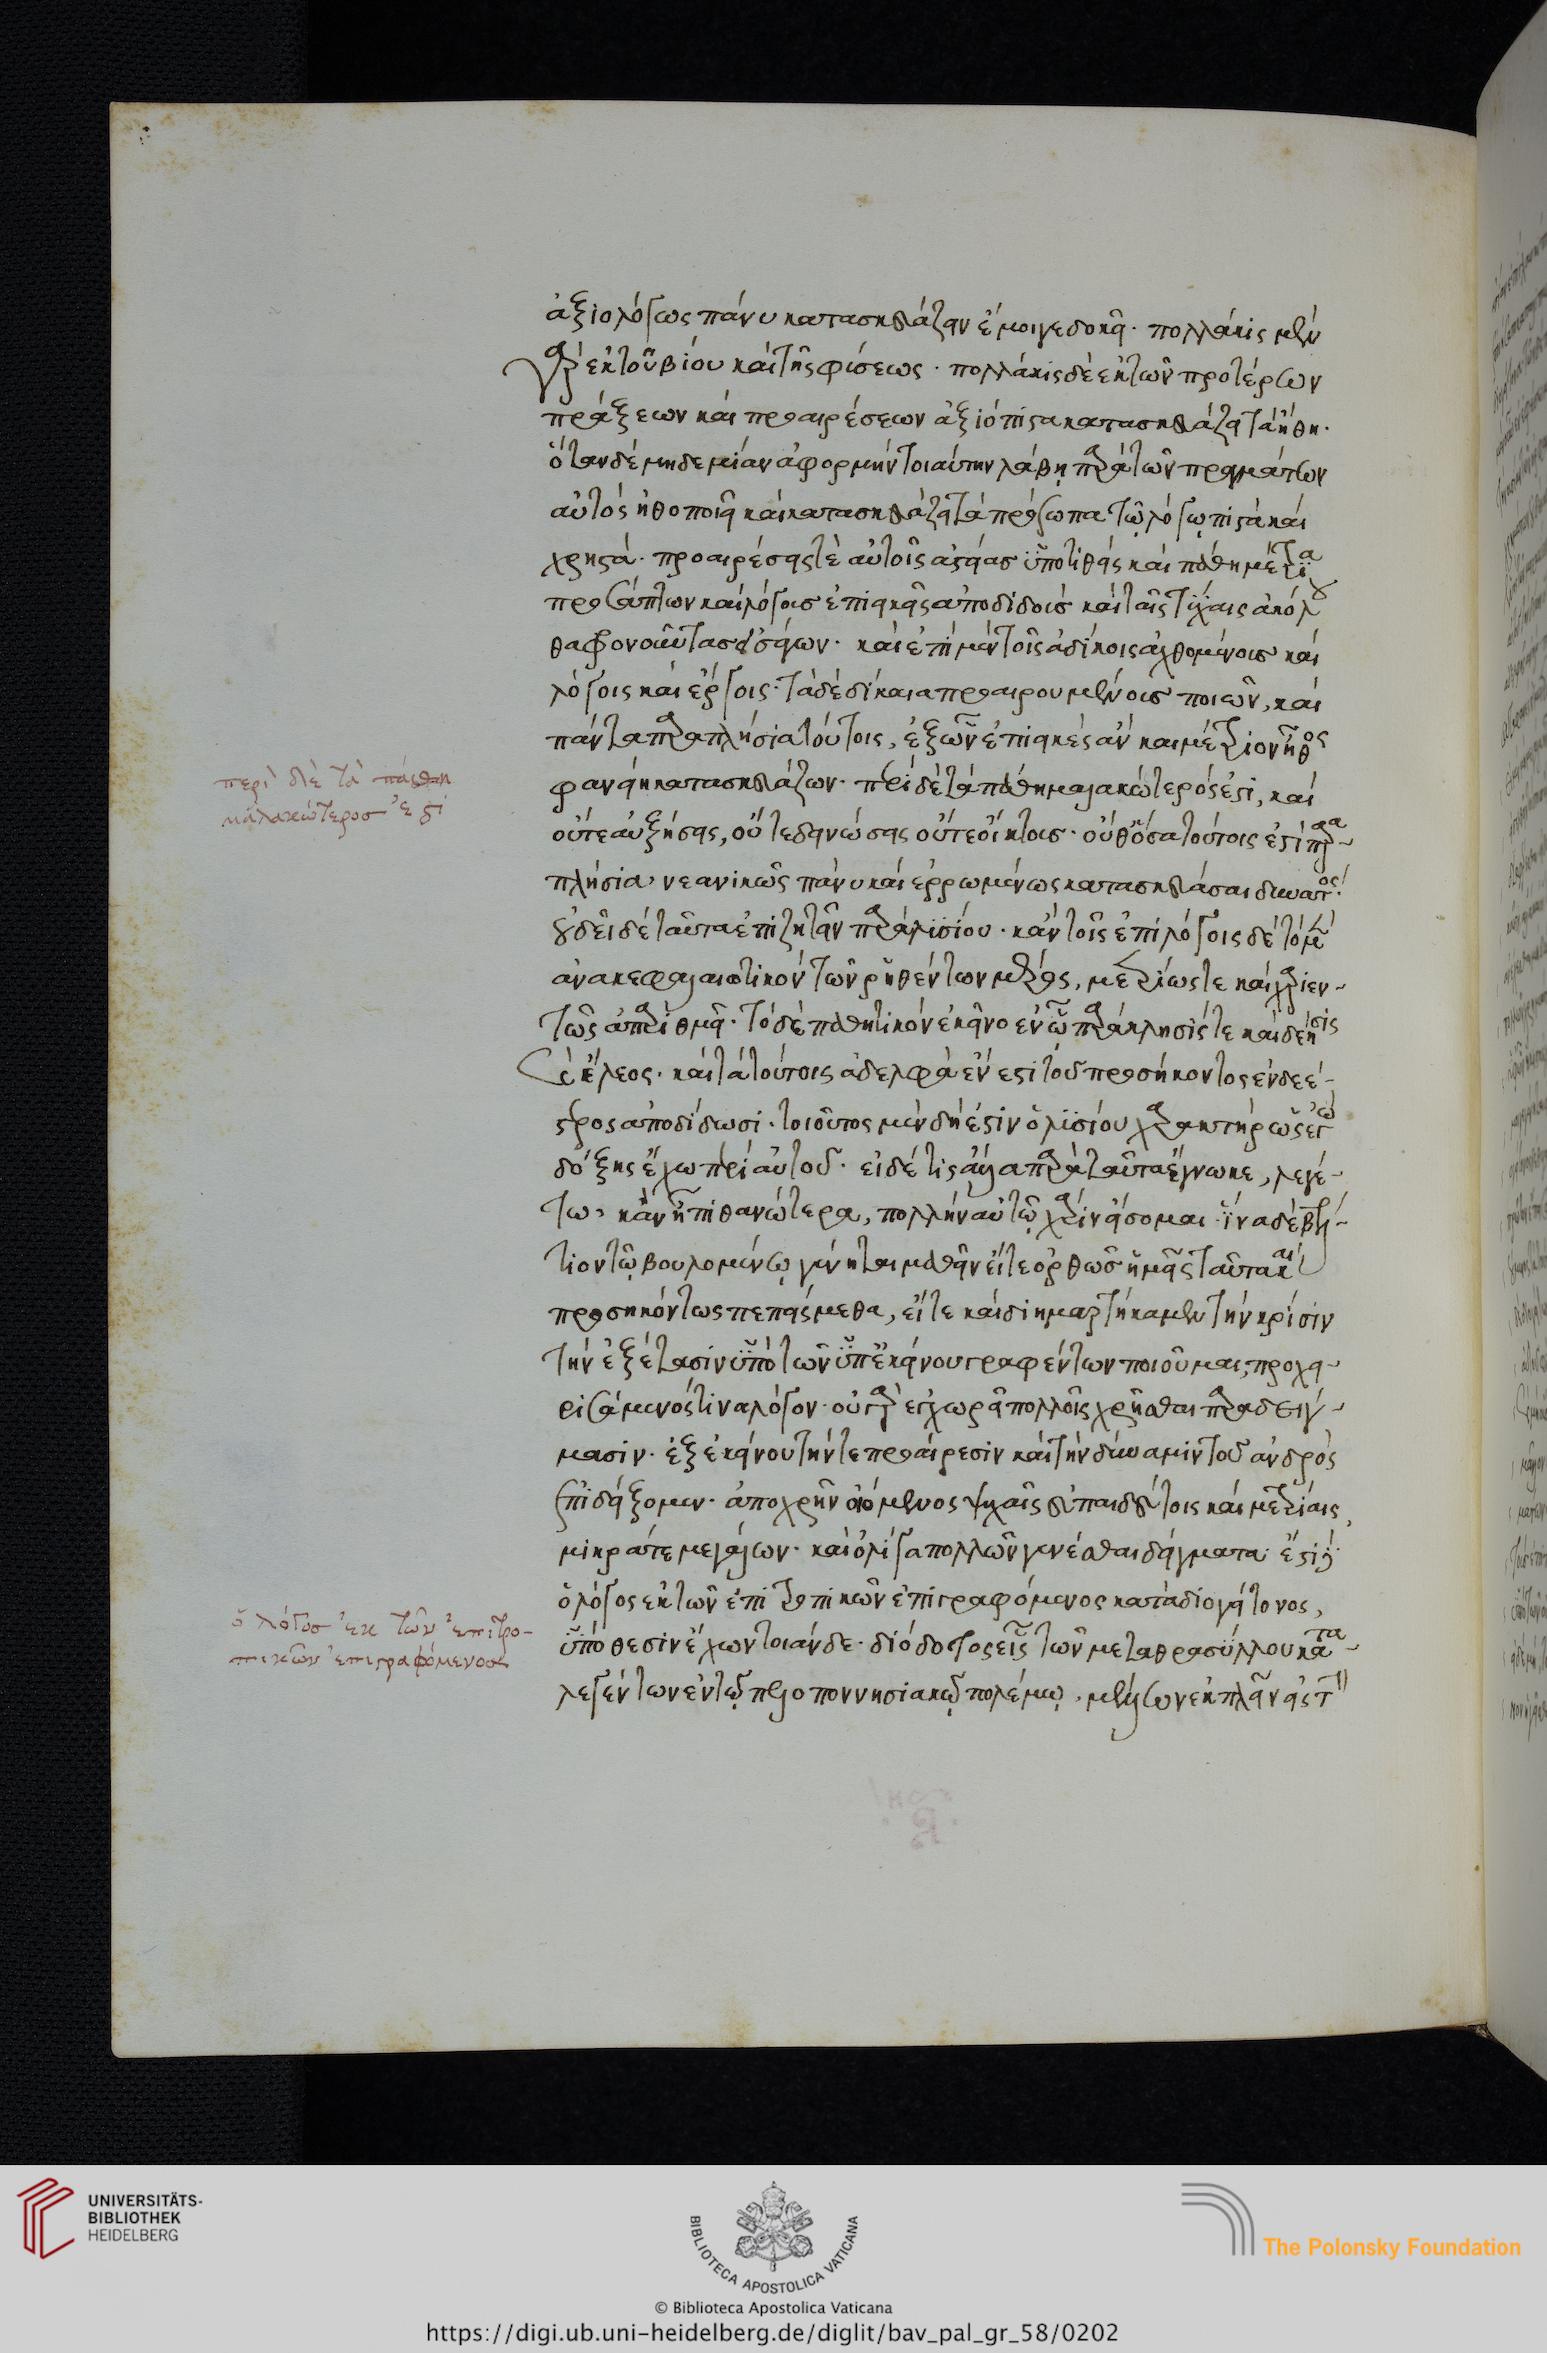 ἀξιολόγως πάνυ κατασκευάζειν ἔμοιγε δοκεῖ. πολλάκις μὲν
γὰρ ἐκ τοῦ βίου καὶ τῆς φύσεως. πολλάκις δὲ ἐκ τῶν προτέρων
πράξεων καὶ προαιρέσεων ἀξιόπιστα κατασκευάζει τὰ ἤθη.
ὅταν δὲ μηδεμίαν ἀφορμὴν τοιαύτην λάβῃ παρὰ τῶν πραγμάτων
αὐτὸς ἠθοποιεῖ καὶ κατασκευάζει τὰ πρόσωπα τῷ λόγῳ πιστὰ καὶ
χρηστά. προαιρέσεις τὲ αὐτοῖς ἀστείας ὑποτιθεὶς καὶ πάθη μέτρια
προσάπτων καὶ λόγοις ἐπιεικεῖς ἀποδιδοὺς καὶ ταῖς τύχαις ἀκόλου
θα φρονοῦντας εἰσάγων. καὶ ἐπὶ μὲν τοῖς ἀδίκοις ἀχθομένοις καὶ
λόγοις καὶ ἔργοις. τὰ δὲ δίκαια προαιρουμένους ποιῶν, καὶ
πάντα παραπλήσια τούτοις, ἐξ ὧν ἐπιεικὲς ἂν καὶ μέτριον ἦθος
φανείη κατασκευάζων. περὶ δὲ τὰ πάθη μαλακώτερός ἐστι, καὶ
οὔτε αὐξήσεις, οὔτε δεινώσεις οὔτε οἴκτους. οὔθ' ὅσα τούτοις ἐστὶ παρα-
πλήσια νεανικῶς πάνυ καὶ ἐρρωμένως κατασκευάσαι δυνατός.
οὐ δεῖ δὲ ταῦτα ἐπιζητεῖν παρὰ λυσίου. κἀν τοῖς ἐπιλόγοις δὲ τὸ μὲν
ἀνακεφαλαιωτικὸν τῶν ῥηθέντων μέρος, μετρίως τε καὶ χαριέν-
τως ἀπαριθμεῖ. τὸ δὲ παθητικὸν ἐκεῖνο ἐν ᾧ παράκλησίς τε καὶ δέησις
καὶ ἔλεος. καὶ τὰ τούτοις ἀδελφὰ ἔνεστι τοῦ προσήκοντος ἐνδεέ-
στερος ἀποδίδωσι. τοιοῦτος μὲν δή ἐστιν ὁ λυσίου χαρακτήρ ὡς ἐγὼ
δόξης ἔχω περὶ αὐτοῦ. εἰ δέ τις ἄλλα παρὰ ταῦτα ἔγνωκε, λεγέ-
τω. κἂν ᾖ πιθανώτερα, πολλὴν αὐτῷ χάριν εἴσομαι. ἵνα δὲ βέλ-
τιον τῷ βουλομένῳ γένηται μαθεῖν εἴτε ὀρθῶς ἡμεῖς ταῦτα καὶ
προσηκόντως πεπείσμεθα, εἴτε καὶ διημαρτήκαμεν τὴν κρίσιν
τὴν ἐξέτασιν ὑπὸ τῶν ὑπ' ἐκείνου γραφέντων ποιοῦμαι, προχει-
ρισάμενός τινα λόγον. οὐ γὰρ ἐγχωρεῖ πολλοῖς χρῆσθαι παραδείγ-
μασιν. ἐξ ἐκείνου τήν τε προαίρεσιν καὶ τὴν δύναμιν τοῦ ἀνδρὸς
ἐπιδείξομεν. ἀποχρῆν οἰόμενος ψυχαῖς εὐπαιδεύτοις καὶ μετρίαις,
μικρά τε μεγάλων. καὶ ὀλίγα πολλῶν γενέσθαι δείγματα. ἔστι δὲ
ὁ λόγος ἐκ τῶν ἐπιτροπικῶν ἐπιγραφόμενος κατὰ διογείτονος,
ὑπόθεσιν ἔχων τοιάνδε. διόδοτος εἷς τῶν μετὰ θρασύλλου κατα-
λεγέντων ἐν τῷ πελοποννησιακῷ πολέμῳ, μέλλων ἐκπλεῖν εἰς τὴν
περὶ δὲ τὰ πάθη
μαλακώτερος ἐστὶ
ὁ λόγος ἐκ τῶν ἐπιτρο-
πικῶν ἐπιγραφόμενος
UNIVERSITÄTS-
BIBLIOTHEK
HEIDELBERG
BIBLIOTECA APOSTOLICA VATICANA
The Polonsky Foundation
© Biblioteca Apostolica Vaticana
https://digi.ub.uni-heidelberg.de/diglit/bav_pal_gr_58/0202